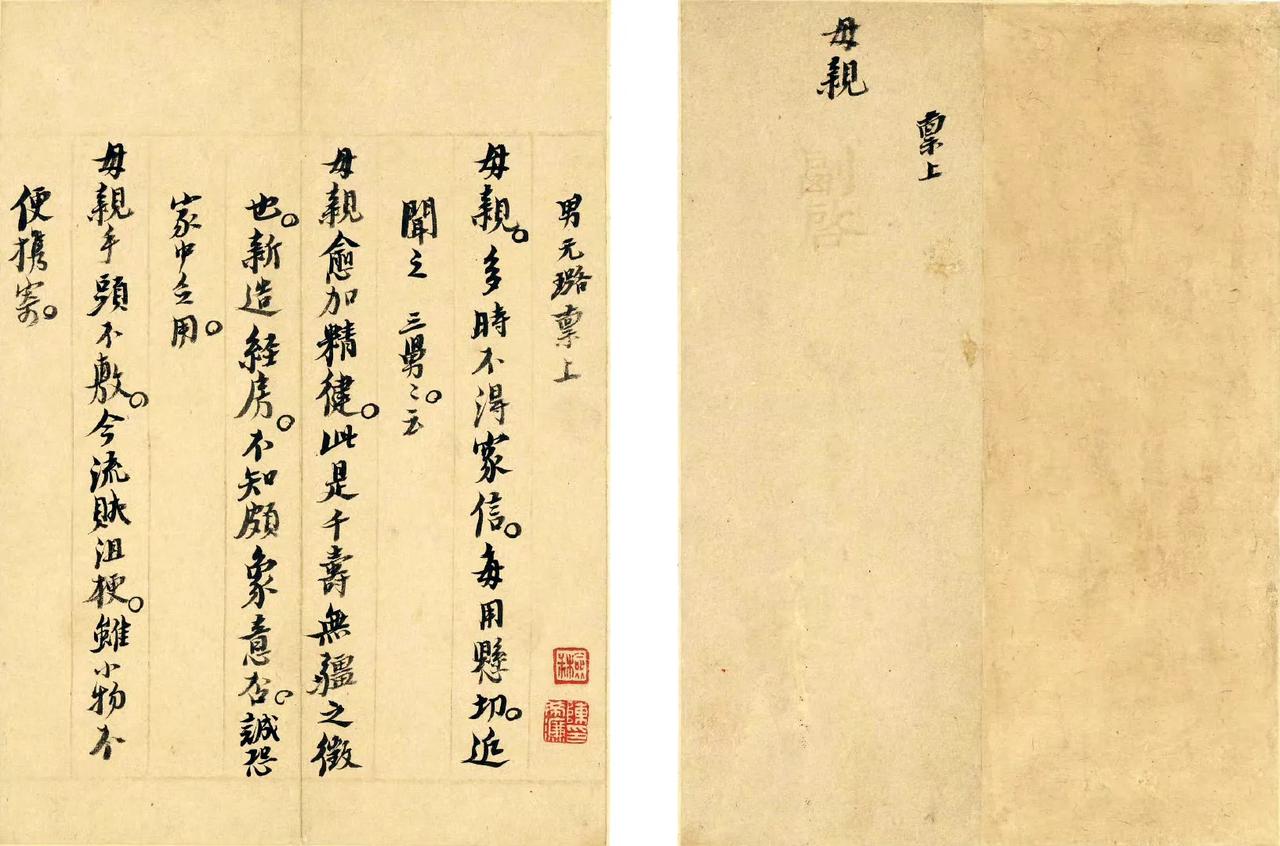 稟上
母親
副啓
男元璐稟上
母親。多時不得家信。每用懸切。近
聞之 三舅〻。云
母親愈加精健。此是千壽無疆之徵
也。新造經房。不知頗象意否。誠恐
家中乏用。
母親手頭不敷。今流賊沮梗。雖小物不
便攜寄。